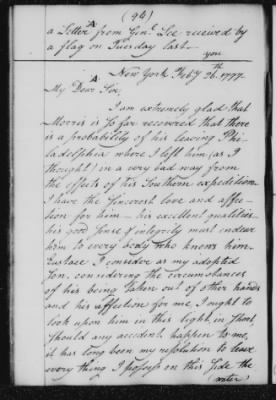 (94)
a Letter from Genl. Lee received by
a flag on Tuesday last
you
New York Feby 26th 1777.
My Dear Sir,
I am extremely glad that
Morris is so far recovered that there
is a probability of his leaving Phi-
ladelphia where I left him (as I
thought) in a very bad way from
the effects of his Southern expedition
I have the sincerest love and affec-
tion for him – his excellent qualities
his good sense & integrity must endear
him to every body who knows him.
Eustace I consider as my adopted
Son, considering the circumstances
of his being taken out of other hands
and his affection for me, I ought to
look upon him in this light, in short,
should any accident happen to me,
it has long been my resolution to leave
every thing I possess on this side the
(water